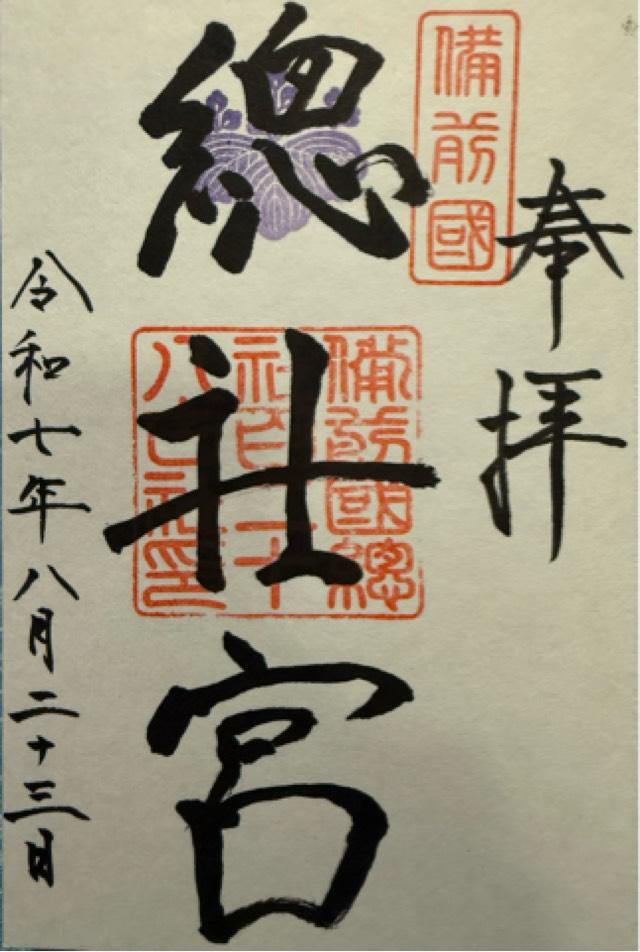 奉拝
備前國
總社宮
備前國總
社百二十
八口社印
令和七年八月二十三日